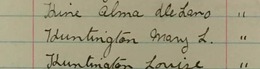 Hine Alma DeLano "
Huntington Mary L. "
Huntington Louise "